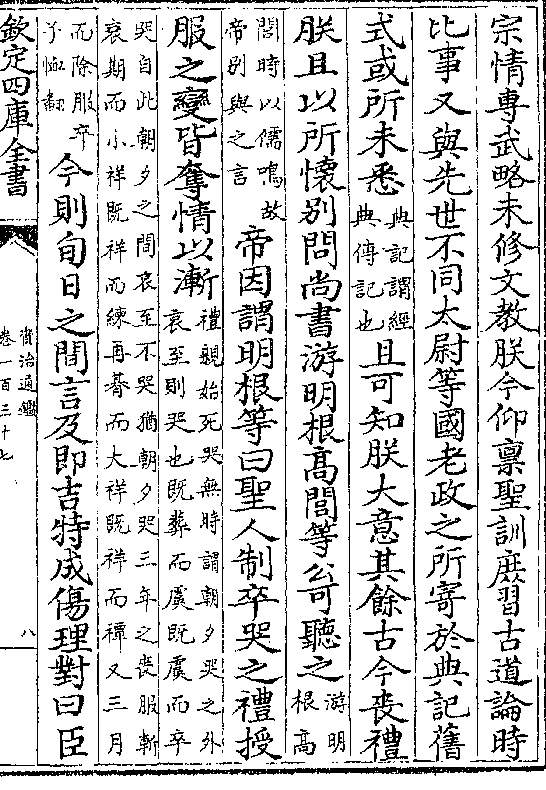 宗情専武略未修文教朕今仰禀聖訓庶習古道論時
比事又與先世不同太尉等國老政之所寄於典記舊
式或所未悉典記謂經典傳記也且可知朕大意其餘古今喪禮
朕且以所懷别問尚書游明根髙閭等公可聽之游明根髙
閭時以儒鳴故帝别與之言帝因謂明根等曰聖人制卒哭之禮授
服之變皆奪情以漸禮親始死哭無時謂朝夕哭之外哀至則哭也既葬而虞既虞而卒
哭自此朝夕之間哀至不哭猶朝夕哭三年之喪服斬衰期而小祥既祥而練再朞而大祥既祥而禫又三月
而除服卒子恤翻今則旬日之間言及即吉特成傷理對曰臣
欽定四庫全書
資治通鑑
卷一百三十七
八